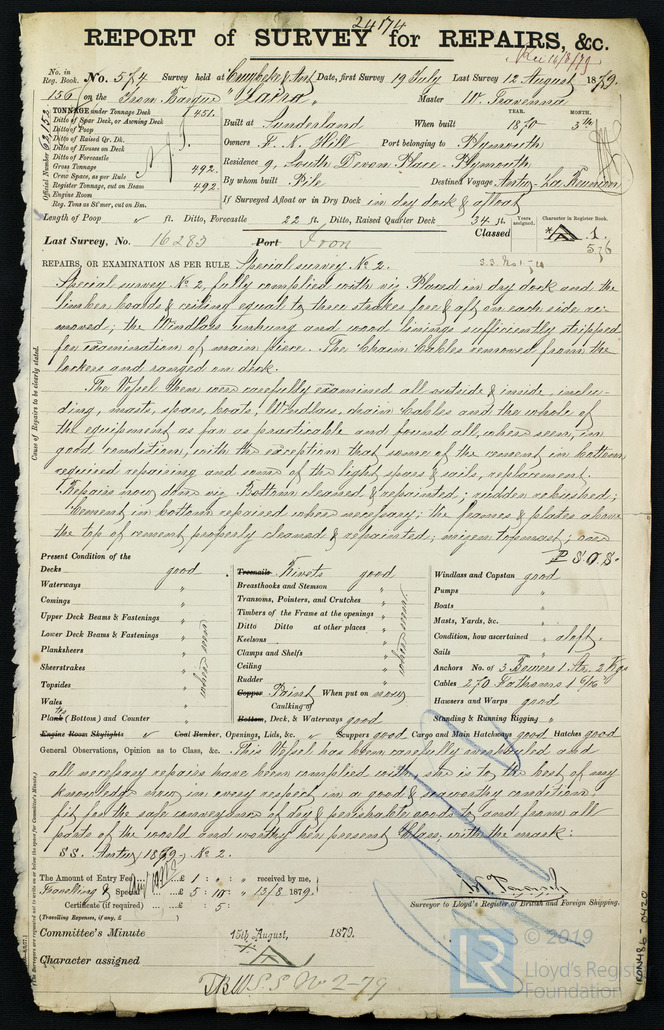 24174
REPORT of SURVEY for REPAIRS, &c.
Rec 16/8/79
No. in Reg. Book. No. 574 Survey held at Date, first Survey 19 July Last Survey 12 August 1879.
156 on the Iron Barque "Laira" Master W. Travenna
TONNAGE under Tonnage Deck 451.
Ditto of Spar Deck, or Awning Deck
Ditto of Poop
Ditto of Raised Qr. Dk.
Ditto of Houses on Deck
Ditto of Forecastle
Gross Tonnage 492.
Crew Space, as per Rule
Register Tonnage, cut on Beam 492.
Engine Room
Reg. Tons as St'mer, cut on Bm.
Official Number
Built at Sunderland When built YEAR. 1870 MONTH. 3rd
Owners Hill Port belonging to Plymouth
Residence 9, South Devon Place - Plymouth
By whom built Pile Destined Voyage La Reunion
If Surveyed Afloat or in Dry Dock in dry dock & afloat
Length of Poop ft. Ditto, Forecastle 22 ft. Ditto, Raised Quarter Deck 34 ft.
Years assigned. Character in Register Book.
Classed A 1.
Last Survey, No. 16283 Port Iron
REPAIRS, OR EXAMINATION AS PER RULE Special survey No 2.
Special survey No 2, fully complied with viz Placed in dry dock and the
limber boards & ceiling equal to three strakes fore & aft on each side re-
moved; the Windlass unhung and wood linings sufficiently stripped
for examination of main piece. The Chain Cables removed from the
lockers and ranged on deck.
The Vessel then were carefully examined all outside & inside, inclu-
ding, masts, spars, boats, Windlass, chain Cables and the whole of
the equipment as far as practicable and found all, where seen, in
good condition, with the exception that some of the cement in bottom
required repairing and some of the light spars & sails, replacement.
Repairs now done viz Bottom cleaned & repainted; rudder rebushed;
Cement in bottom repaired where necessary; the frames & plates above
the top of cement properly cleaned & repainted; mizen topmast; one
P.S.O.S.
Cause of Repairs to be clearly stated.
Present Condition of the
Decks good
Waterways "
Comings "
Upper Deck Beams & Fastenings "
Lower Deck Beams & Fastenings "
Planksheers "
Sheerstrakes "
Topsides "
Wales "
Plank (Bottom) and Counter "
where seen
Treenails Rivets good
Breasthooks and Stemson "
Transoms, Pointers, and Crutches "
Timbers of the Frame at the openings "
Ditto Ditto at other places "
Keelsons "
Clamps and Shelfs "
Ceiling "
Rudder "
Copper Paint When put on now
Caulking of
Bottom, Deck, & Waterways good
where seen
Windlass and Capstan good
Pumps "
Boats "
Masts, Yards, &c. "
Condition, how ascertained aloft.
Sails "
Anchors No. of 3 Bowers 1 Str. 2 Kgs
Cables 270 Fathoms 1 6/16
Hawsers and Warps good
Standing & Running Rigging "
Engine Room Skylights Coal Bunker, Openings, Lids, &c. Scuppers good Cargo and Main Hatchways good Hatches good
General Observations, Opinion as to Class, &c. This Vessel has been carefully overhauled and
all necessary repairs have been complied with, she is to the best of my
knowledge now in every respect in a good & seaworthy condition
fit for the safe conveyance of dry & perishable goods to and from all
parts of the world and worthy her present Class, with the mark:
S.S. Antwp 1879, No 2.
The Amount of Entry Fee £ 1 : " : " received by me,
Travelling & Special £ 5 : 10 : " 13/8 1879.
Certificate (if required) : 5 :
(Travelling Expenses, if any, £ )
Surveyor to Lloyd's Register of British and Foreign Shipping.
Committee's Minute 15th August, 1879.
Character assigned A
S.S. No 2-79
IRON486-0420
LR
© 2019
Lloyd's Register
Foundation